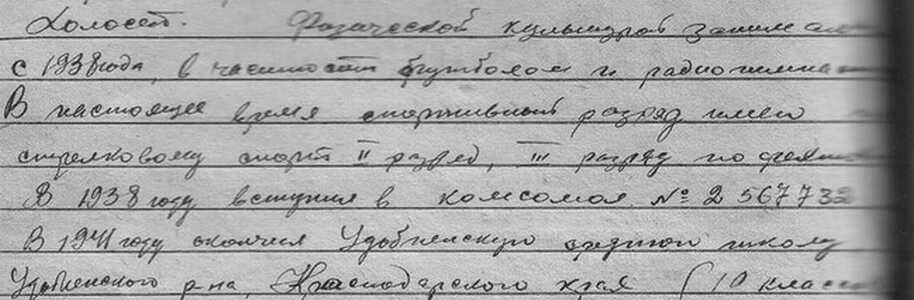 Холост. Физической культурой занима
с 1938 года, в частности футболом и радио
В настоящее время спортивный разряд имею
стрелковому спорт II разряд, III разряд по
В 1938 году вступил в комсомол № 2567733
В 1941 году окончил Удобненскую среднюю школу
Удобненского р-на, Краснодарского края (10 класс